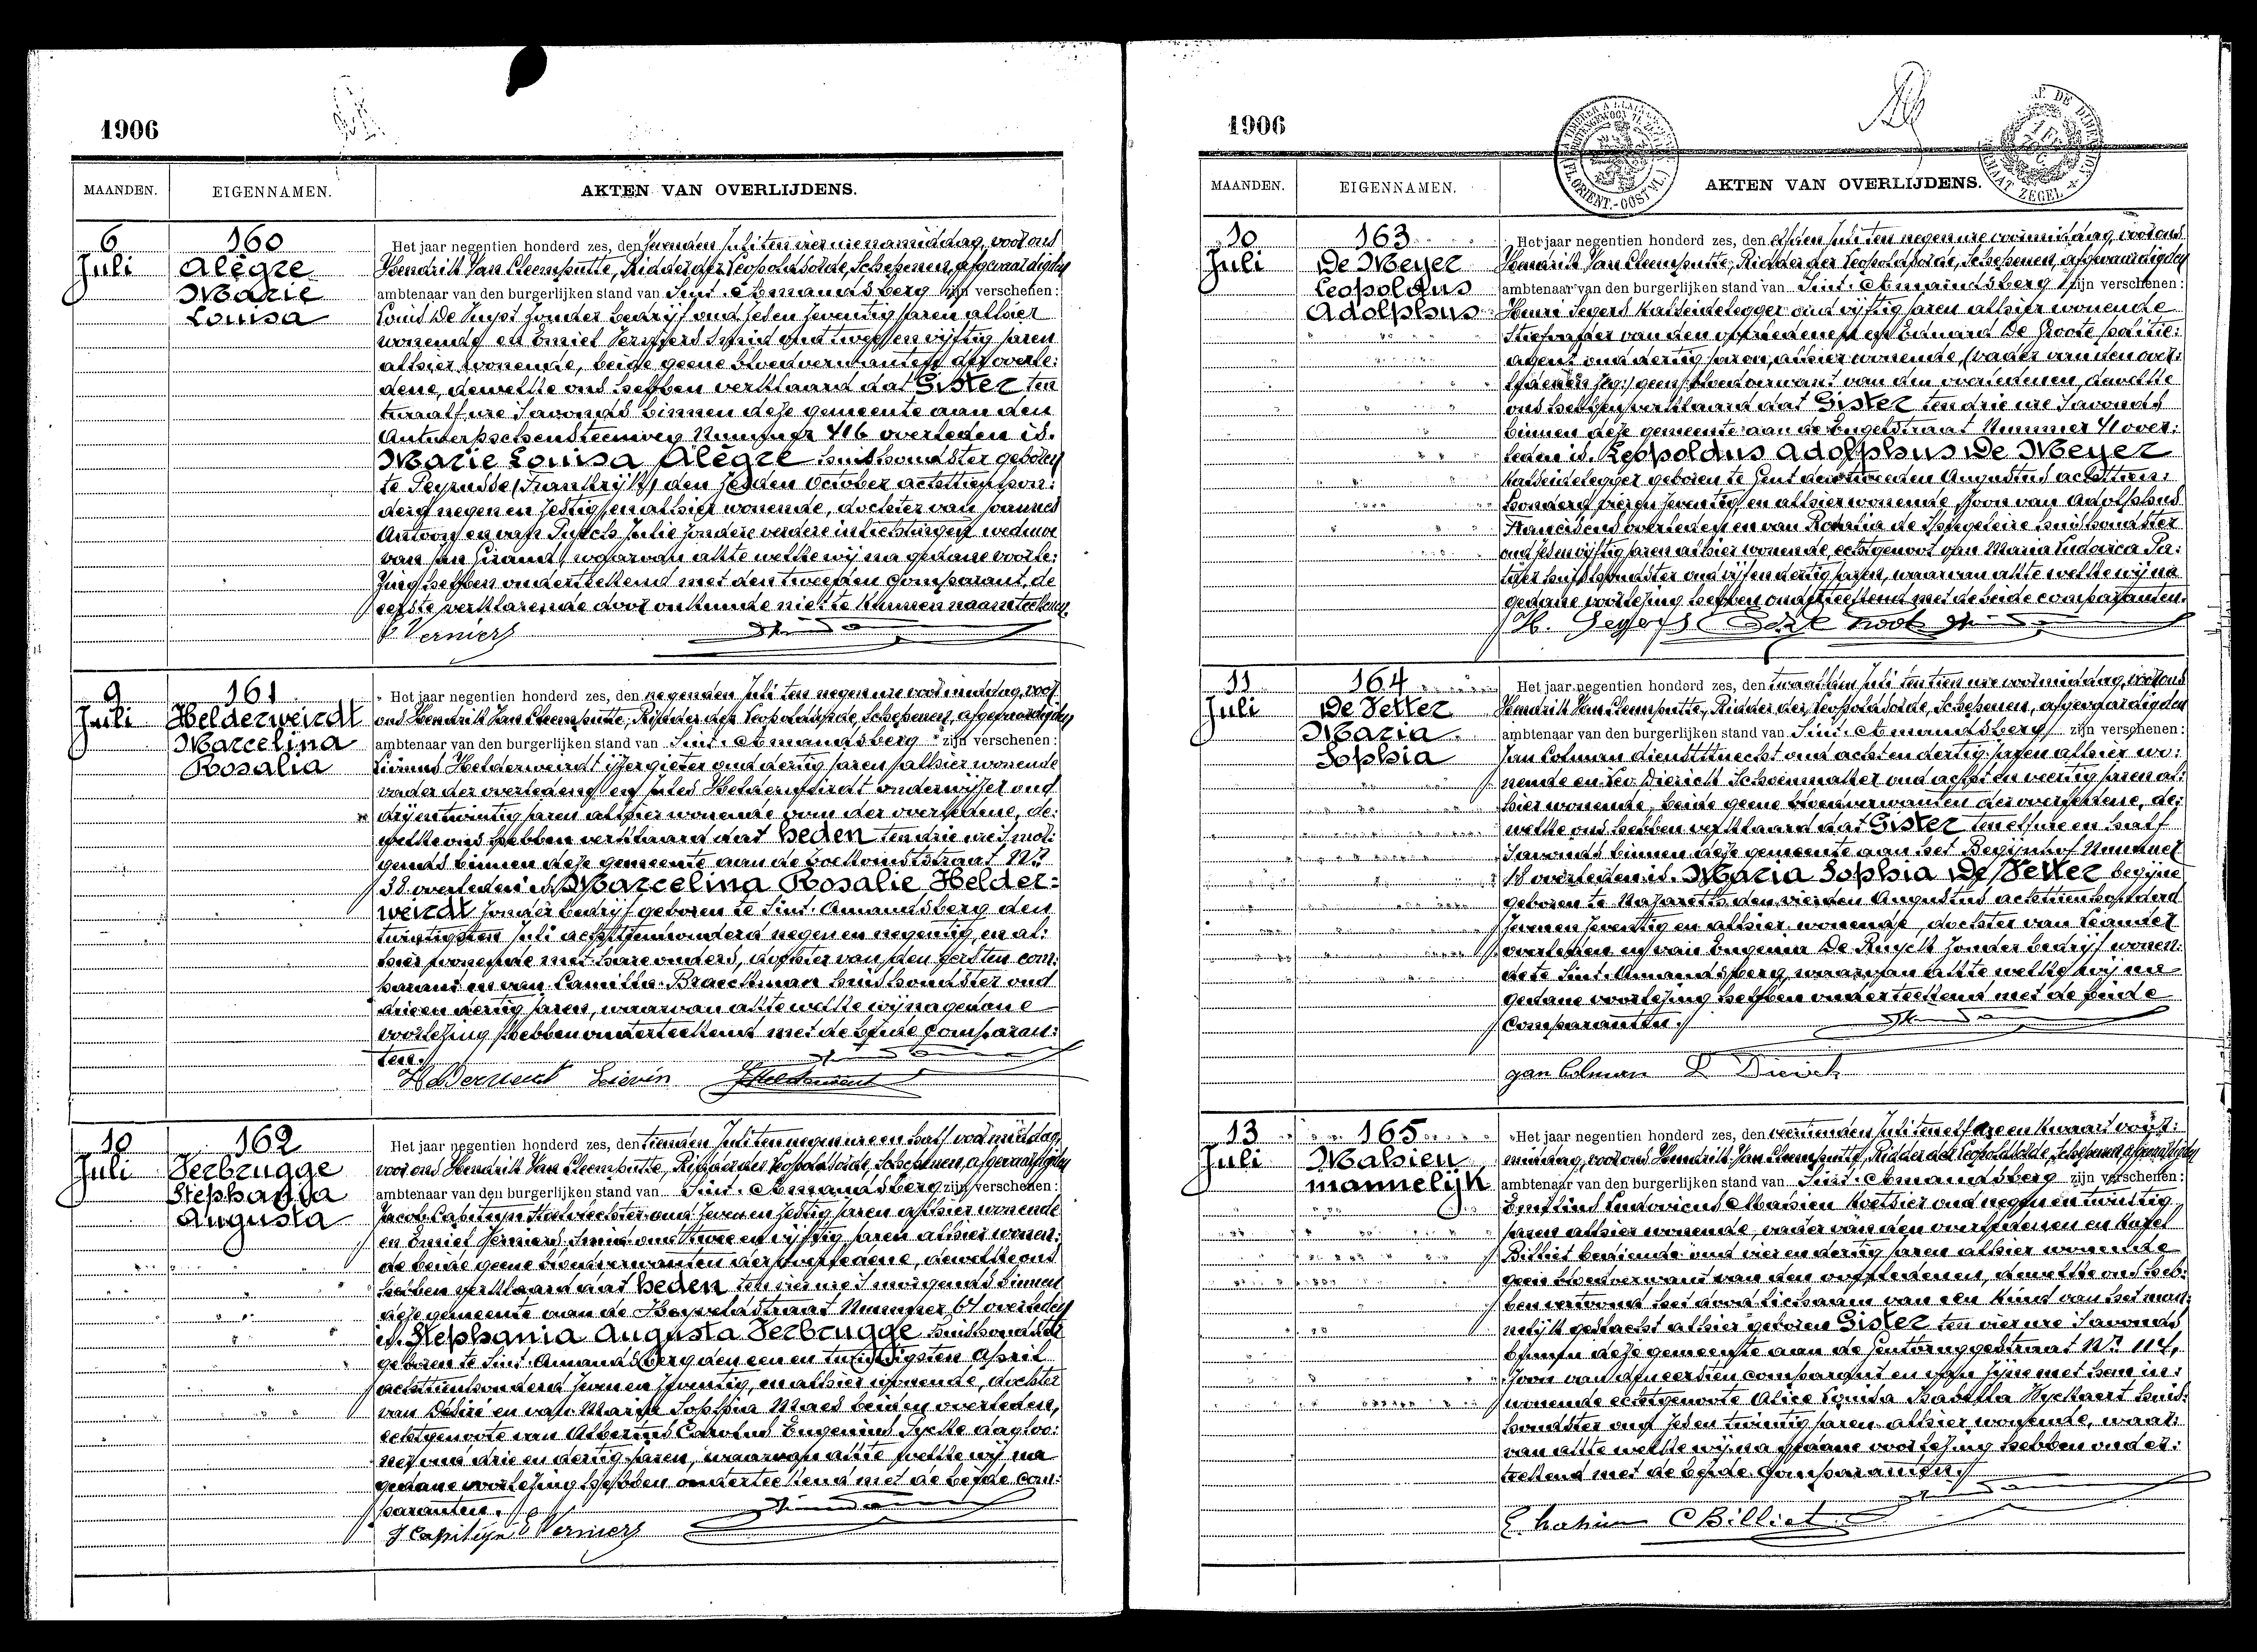 1906
MAANDEN.
EIGENNAMEN.
AKTEN VAN OVERLIJDENS.
6
Juli
160
Alègre
Marie
Louisa
Het jaar negentien honderd zes, den zevenden Juli ten vier ure namiddag, voor ons
Hendrik Van Cleemputte, Ridder der Leopoldsorde, Schepenen, afgevaardigden
ambtenaar van den burgerlijken stand van Sint-Amandsberg zijn verschenen:
Louis De Kuyst zonder bedrijf oud zeden zeventig jaren alhier
wonende en Emiel Verniers Smid oud twee en vijftig jaren
alhier wonende, beide geene bloedverwanten der overle:
dene, dewelke ons hebben verklaard dat Gister ten
twaalf ure Savonds binnen deze gemeente aan den
Antwerpschensteenweg Nummer 416 overleden is.
Marie Louisa Alègre huishoudster geboren
te Peyrusse (Frankrijk) den zesden October achttien hon:
derd negen en zestig en alhier wonende, dochter van Joannes
Antoon en van Puech Julie zondere verdere inlichtingen weduwe
van Jan Girand, waarvan akte welke wij na gedane voorle:
zing hebben onderteekend met den tweeden comparant, de
eerste verklarende door onkunde niet te kunnen naamteekenen
E Verniers
9
Juli
161
Helderweirdt
Marcelina
Rosalia
Het jaar negentien honderd zes, den negenden Juli ten negen ure voormiddag, voor
ons Hendrik Van Cleemputte, Ridder der Leopoldsorde, Schepenen, afgevaardigden
ambtenaar van den burgerlijken stand van Sint-Amandsberg zijn verschenen:
Livinus Helderweirdt ijzergieter oud dertig jaren alhier wonende
vader der overledene en Jules Helderweirdt onderwijzer oud
drij en twintig jaren alhier wonende oom der overledene, de:
welke ons hebben verklaard dat heden ten drie ure smor:
gends binnen deze gemeente aan de Toekomststraat Nr
38 overleden is Marcelina Rosalie Helder:
weirdt zonder bedrijf geboren te Sint-Amandsberg den
twintigsten Juli achttienhonderd negen en negentig, en al:
hier wonende met hare ouders, dochter van den eersten com:
parant en van Camilla Braeckman huishoudster oud
drie en dertig jaren, waarvan akte welke wij na gedane
voorlezing hebben onderteekend met de beide Comparan:
ten.
Helderweirdt Lievin
JHelderweirdt
10
Juli
162
Verbrugge
Stephania
Augusta
Het jaar negentien honderd zes, den tienden Juli ten negen ure en half voormiddag,
voor ons Hendrik Van Cleemputte, Ridder der Leopoldsorde, Schepenen, afgevaardigden
ambtenaar van den burgerlijken stand van Sint-Amandsberg zijn verschenen:
Jacob Capiteyn oud zeven en zestig jaren alhier wonende
en Emiel Verniers Smid oud twee en vijftig jaren alhier wonen:
de beide geene bloedverwanten der overledene, dewelke ons
hebben verklaard dat heden ten vier ure smorgends binnen
deze gemeente aan de Heyveldstraat Nummer 61 overleden
is Stephania Augusta Verbrugge huishoudster
geboren te Sint-Amandsberg den een en twintigsten April
achttienhonderd zeven en zeventig, en alhier wonende, dochter
van Desiré en van Marie Sophia Maes beiden overleden,
echtgenoote van Albertus Carolus Eugenius Eycke dagloo:
ner oud drie en dertig jaren, waarvan akte welke wij na
gedane voorlezing hebben onderteekend met de beide com:
paranten.
J Capiteyn E Verniers
1906
MAANDEN.
EIGENNAMEN.
AKTEN VAN OVERLIJDENS.
10
Juli
163
De Meyer
Leopoldus
Adolphus
Het jaar negentien honderd zes, den elfden Juli ten negen ure voormiddag, voor ons
Hendrik Van Cleemputte, Ridder der Leopoldsorde, Schepenen, afgevaardigden
ambtenaar van den burgerlijken stand van Sint-Amandsberg zijn verschenen:
Henri Segers Kalseidelegger oud vijftig jaren alhier wonende
Stiefvader van den overledenen en Eduard De Groote politie:
agent oud dertig jaren, alhier wonende, (vader van den over:
ledenen geen bloedverwant van den overledenen, dewelke
ons hebben verklaard dat Gister ten drie ure Savonds
binnen deze gemeente aan de Engelstraat Nummer 41 over:
leden is. Leopoldus Adolphus De Meyer
kalseidelegger geboren te Gent den tweeden Augustus achttien:
honderd vier en zeventig, en alhier wonende, Zoon van Adolphus
Franciscus overleden en van Rosalia de Spiegeleire huishoudster
oud zeden vijftig jaren alhier wonende, echtgenoot van Maria Ludovica Pa:
huishoudster oud vijf en dertig jaren, waarvan akte welke wij na
gedane voorlezing hebben onderteekend met de beide comparanten.
H. Segers
11
Juli
164
De Vetter
Maria
Sophia
Het jaar negentien honderd zes, den twaalfden Juli ten tien ure voormiddag, voor ons
Hendrik Van Cleemputte, Ridder der Leopoldsorde, Schepenen, afgevaardigden
ambtenaar van den burgerlijken stand van Sint-Amandsberg zijn verschenen:
Jan Colman dienstknecht oud acht en dertig jaren alhier wo:
nende en Leo Dierick Schoenmaker oud acht en veertig jaren al:
hier wonende, beide geene bloedverwanten der overledene, de:
welke ons hebben verklaard dat Gister ten elf ure en half
Savonds binnen deze gemeente aan het Begijnhof Nummer
18 overleden is. Maria Sophia De Vetter begijne
geboren te Nazareth den vierden Augustus achttienhonderd
zeven en zeventig en alhier wonende, dochter van Leander
overleden en van Eugenia De Ruyck zonder bedrijf wonen:
de te Sint-Amandsberg, waarvan akte welke wij na
gedane voorlezing hebben onderteekend met de beide
Comparanten.
gan Colman L Dierick
13
Juli
165
Mahieu
mannelijk
Het jaar negentien honderd zes, den veertienden Juli ten elf ure en kwaart voor:
middag, voor ons Hendrik Van Cleemputte, Ridder der Leopoldsorde, Schepenen afgevaardigden
ambtenaar van den burgerlijken stand van Sint-Amandsberg zijn verschenen:
Emilius Ludovicus Mahieu Koetsier oud negen en twintig
jaren alhier wonende, vader van den overledenen en Karel
Billiet bediende oud vier en dertig jaren alhier wonende
geen bloedverwant van den overledenen, dewelke ons heb:
ben vertoond het dood lichaam van een kind van het man:
nelijk geslacht alhier geboren Gister ten vier ure Savonds
binnen deze gemeente aan de Gentbruggestraat Nr 114,
Zoon van den eersten comparant en van zijne met hem in:
wonende echtgenoote Alice Louisa Isabella Ryckaert huis:
houdster oud zeden twintig jaren alhier wonende, waar:
van akte welke wij na gedane voorlezing hebben onder:
teekend met de beide Comparanten.
E. Mahieu C Billiet